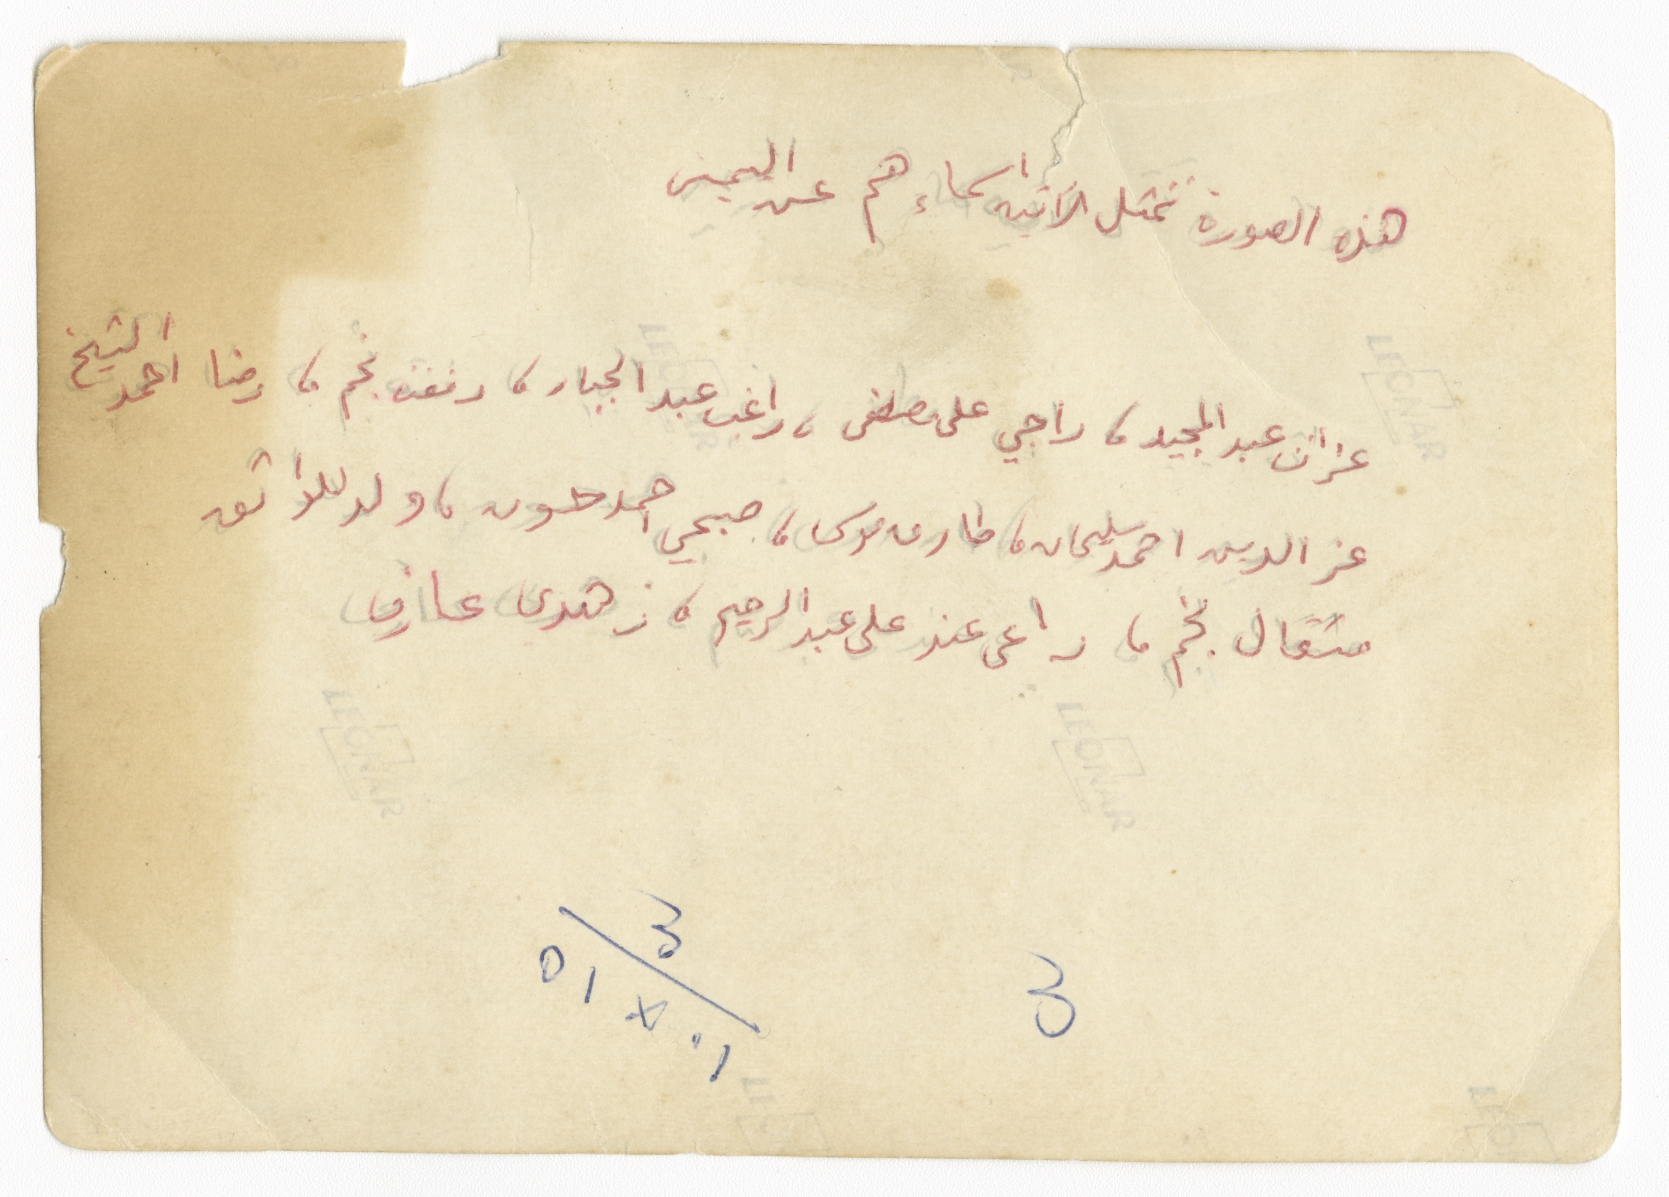 هذه الصورة تمثل الآتيه اسماءهم عن اليمين
عزات عبد المجيد، راجي علي مصطفى، راغب عبد الجبار، رفقه نجم، رضا احمد الشيخ
عز الدين احمد سليمان، طارق موسى، صبحي احمد حسون، ولد للواثق
مثقال نجم، راعي عند علي عبد الرحيم، زهدي عارف
LEONAR
LEONAR
LEONAR
LEONAR
3
10 x 15